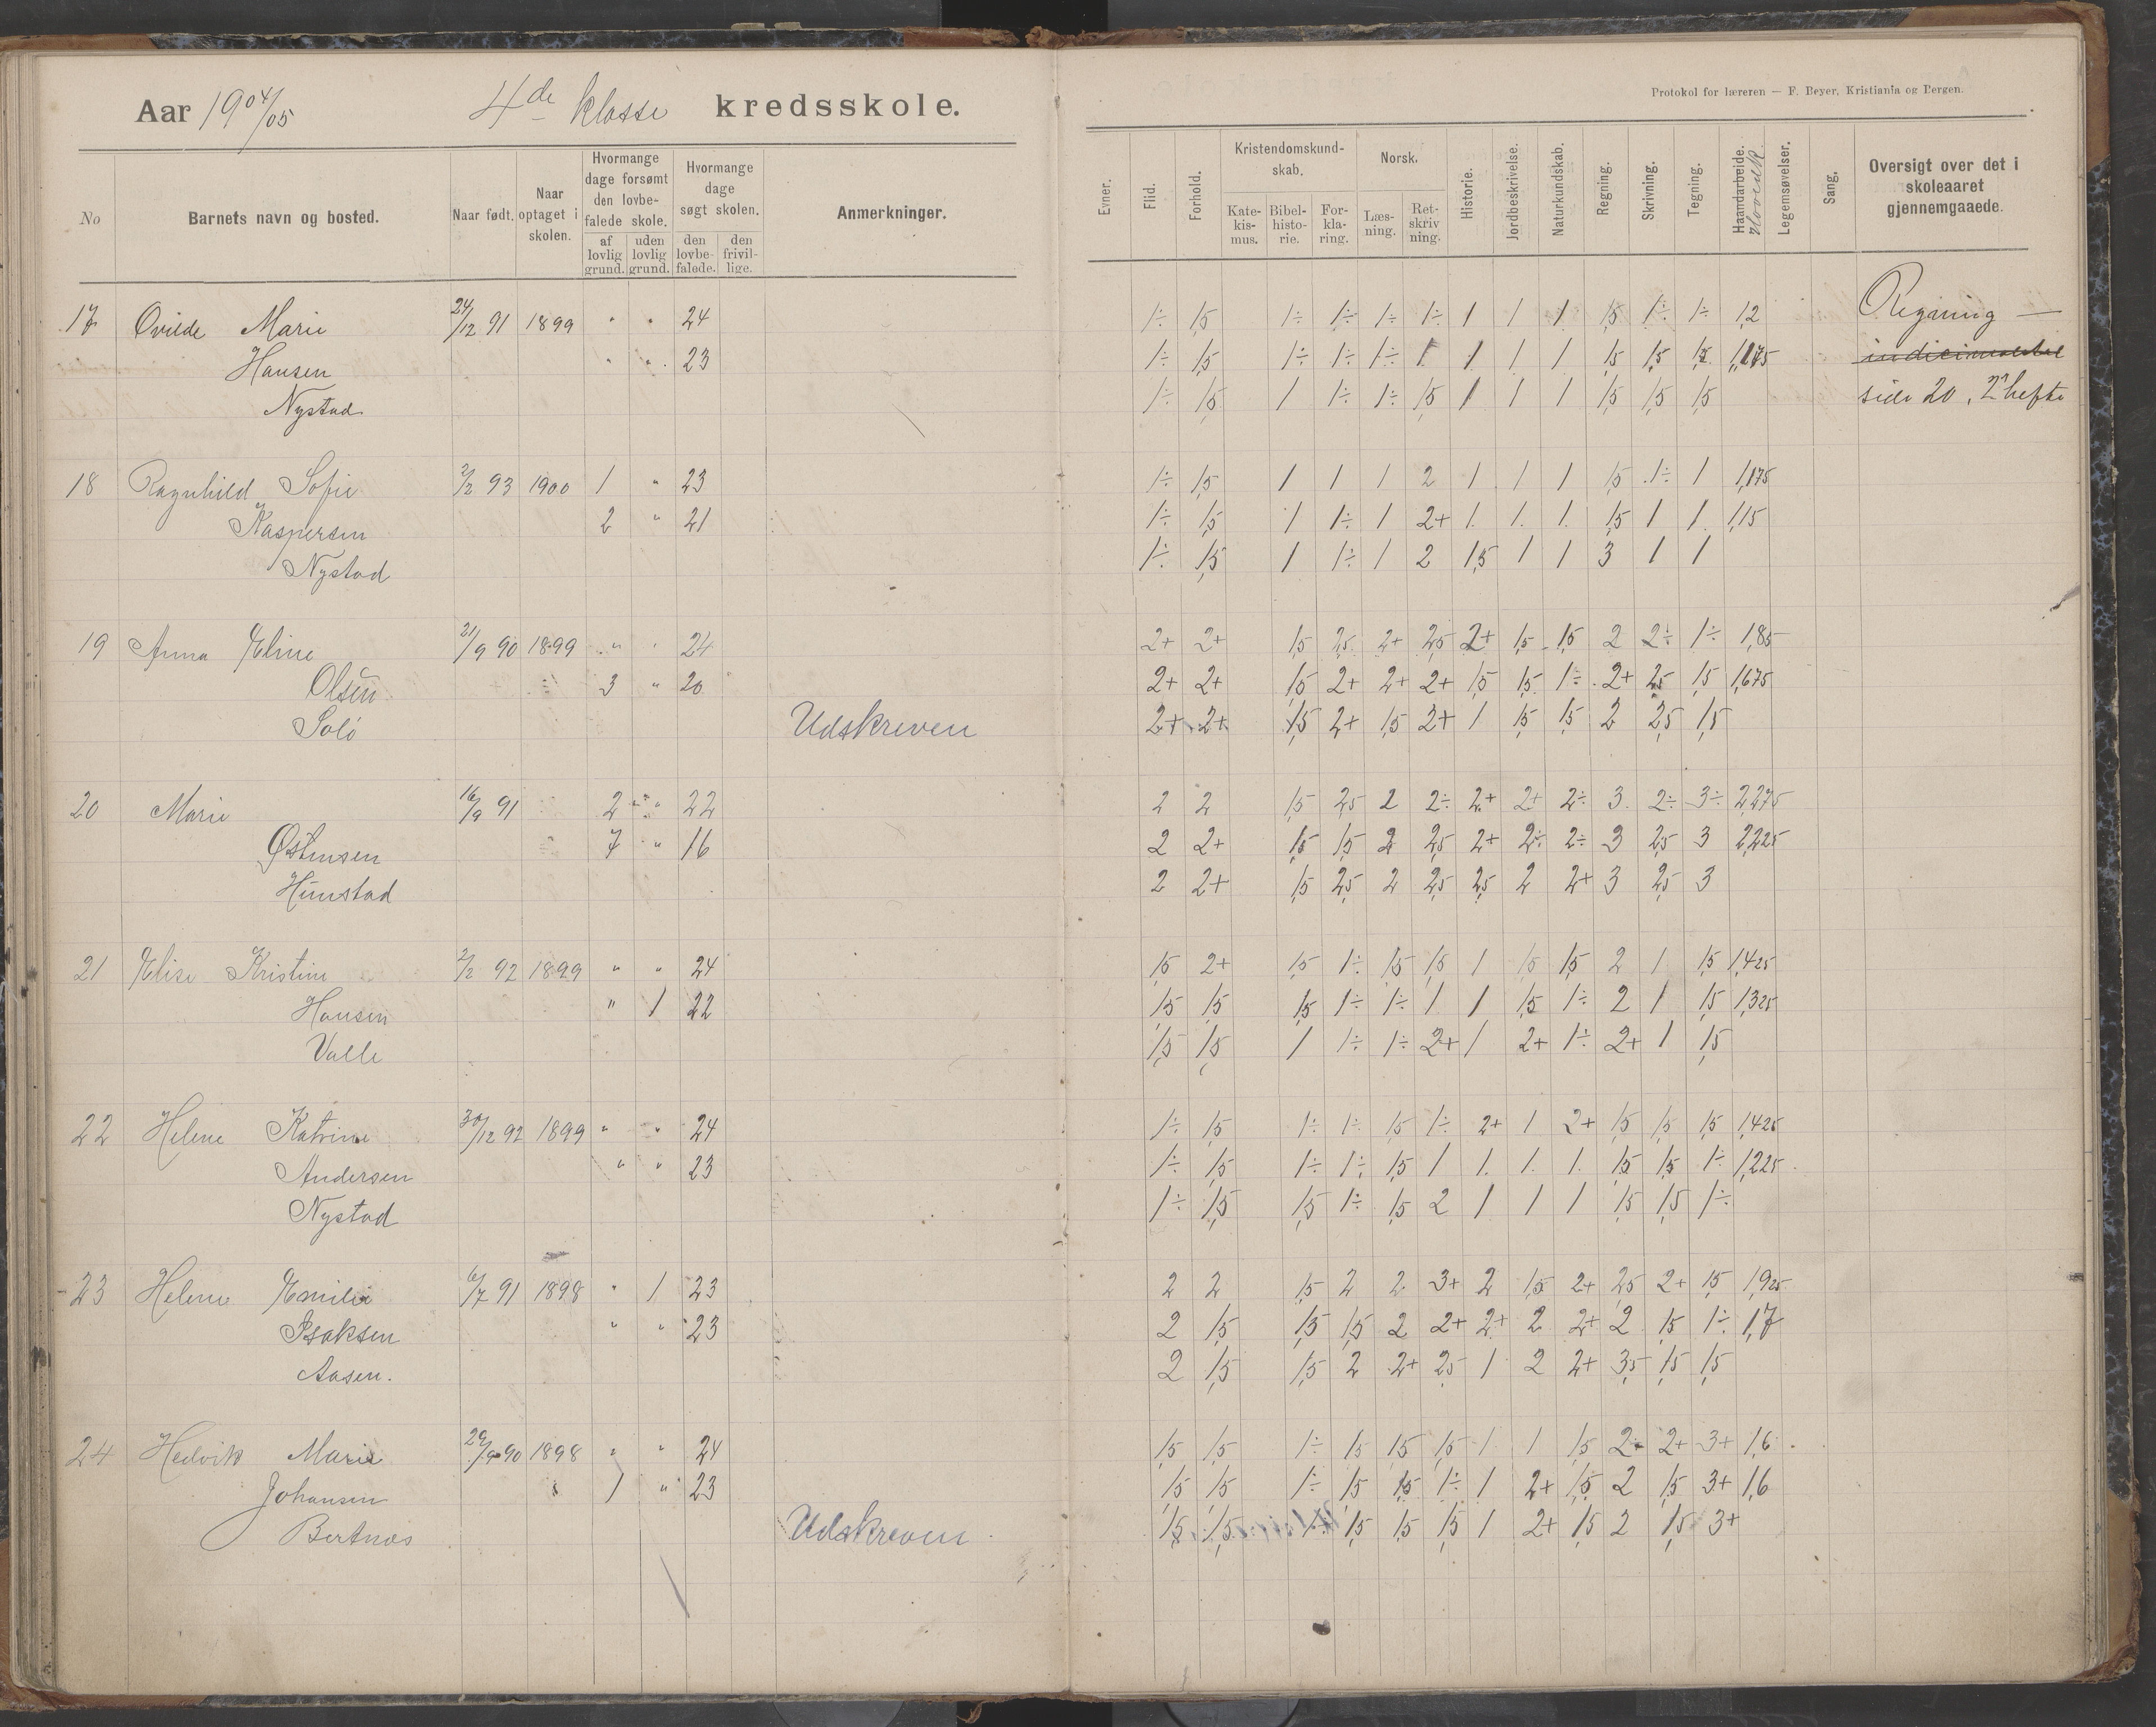 Aar 1904/05 4de klasse kredsskole.
Protokol for læreren — F. Beyer, Kristiania og Bergen.
No Barnets navn og bosted. Naar født. Naar optaget i skolen. Hvormange dage forsømt den lovbefalede skole. af lovlig grund. uden lovlig grund. Hvormange dage søgt skolen. den lovbefalede. den frivillige. Anmerkninger.
Evner. Flid. Forhold. Kristendomskundskab. Katekismus. Bibelhistorie. Forklaring. Norsk. Læsning. Retskrivning. Historie. Jordbeskrivelse. Naturkundskab. Regning. Skrivning. Tegning. Haandarbeide. Hovedk. Legemsøvelser. Sang. Oversigt over det i skoleaaret gjennemgaaede.
17 Ovilde Marie 24/12 91 1899 " " 24 1÷ 1,5 1÷ 1÷ 1÷ 1÷ 1 1 1 1,5 1÷ 1÷ 1,2 Regning —
Hansen " " 23 1÷ 1,5 1÷ 1÷ 1÷ 1 1 1 1 1,5 1,5 1,5 1,175
Nystad 1÷ 1,5 1 1÷ 1÷ 1,5 1 1 1 1,5 1,5 1,5 side 20, 2n hefte
18 Ragnhild Sofie 2/2 93 1900 1 " 23 1÷ 1,5 1 1 1 2 1 1 1 1,5 1÷ 1 1,175
Kaspersen 2 " 21 1÷ 1,5 1 1÷ 1 2+ 1 1 1 1,5 1 1 1,15
Nystad 1÷ 1,5 1 1÷ 1 2 1,5 1 1 3 1 1
19 Anna Eline 21/9 90 1899 " " 24 2+ 2+ 1,5 2,5 2+ 2,5 2+ 1,5 1,5 2 2÷ 1÷ 1,85
Olsen 3 " 20 2+ 2+ 1,5 2+ 2+ 2+ 1,5 1,5 1÷ 2+ 2,5 1,5 1,675
Solö Udskreven 2+ 2+ 1,5 2+ 1,5 2+ 1 1,5 1,5 2 2,5 1,5
20 Marie 16/9 91 2 " 22 2 2 1,5 2,5 2 2÷ 2+ 2+ 2÷ 3 2÷ 3÷ 2,275
Østensen 7 " 16 2 2+ 1,5 1,5 2 2,5 2+ 2÷ 2÷ 3 2,5 3 2,225
Hunstad 2 2+ 1,5 2,5 2 2,5 2,5 2 2+ 3 2,5 3
21 Elise Kristine 2/2 92 1899 " " 24 1,5 2+ 1,5 1÷ 1,5 1,5 1 1,5 1,5 2 1 1,5 1,425
Hansen " 1 22 1,5 1,5 1,5 1÷ 1÷ 1 1 1,5 1÷ 2 1 1,5 1,325
Valle 1,5 1,5 1 1÷ 1÷ 2+ 1 2+ 1÷ 2+ 1 1,5
22 Helene Katrine 30/12 92 1899 " " 24 1÷ 1,5 1÷ 1÷ 1,5 1÷ 2+ 1 2+ 1,5 1,5 1,5 1,425
Andersen " " 23 1÷ 1,5 1÷ 1÷ 1,5 1 1 1 1 1,5 1,5 1÷ 1,225
Nystad 1÷ 1,5 1,5 1÷ 1,5 2 1 1 1 1,5 1,5 1÷
23 Helene Emilie 6/7 91 1898 " 1 23 2 2 1,5 2 2 3+ 2 1,5 2+ 2,5 2+ 1,5 1,925
Isaksen " " 23 2 1,5 1,5 1,5 2 2+ 2+ 2 2+ 2 1,5 1÷ 1,7
Aasen. 2 1,5 1,5 2 2+ 2,5 1 2 2+ 3,5 1,5 1,5
24 Hedvik Marie 29/9 90 1898 " " 24 1,5 1,5 1÷ 1,5 1,5 1,5 1 1 1,5 2÷ 2+ 3+ 1,6
Johansen 1 " 23 1,5 1,5 1÷ 1,5 1,5 1÷ 1 2+ 1,5 2 1,5 3+ 1,6
Bertnes Udskreven 1,5 1,5 1÷ 1,5 1,5 1,5 1 2+ 1,5 2 1,5 3+